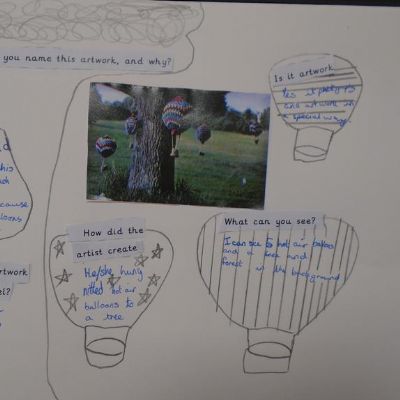 you name this artwork, and why?
Is it artwork
Yes it
and artwork in
a special way
d
this
cause
loons
rtwork
el?
How did the
artist create
He/she hung
nitted hot air
balloons to
a tree
What can you see?
I can see 5 hot air balloons
and a tree and
forest in the background